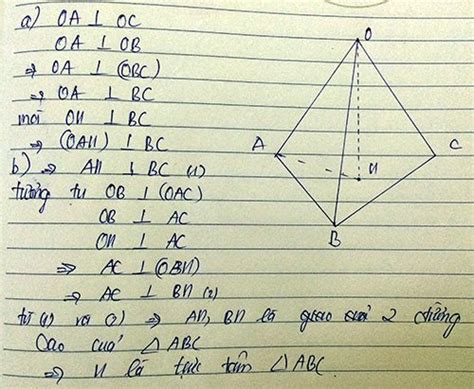 a) OA ⊥ OC
OA ⊥ OB
⇒ OA ⊥ (OBC)
⇒ OA ⊥ BC
mà OH ⊥ BC
⇒ (OAH) ⊥ BC
b) ⇒ AH ⊥ BC (1)
tương tự OB ⊥ (OAC)
OB ⊥ AC
OH ⊥ AC
⇒ AC ⊥ (OBH)
⇒ AC ⊥ BH (2)
từ (1) và (2) ⇒ AH, BH là giao của 2 đường
cao của △ ABC
⇒ H là trực tâm △ ABC.
O
A
C
H
B